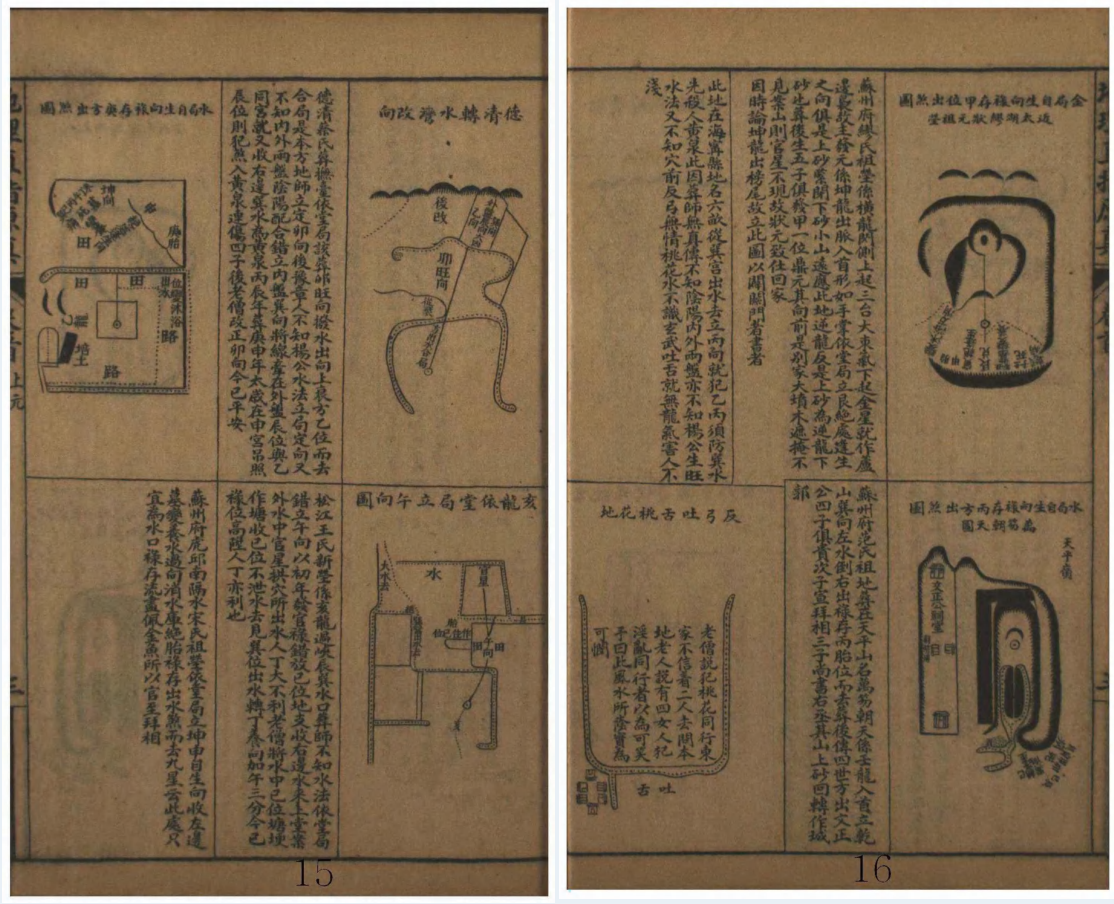 德清轉水灣改向
後改
卯旺向
德清蔡氏葬撫臺依堂局該葬卯旺向撥水出向上衰方乙位而去
合局是本方地師立定卯向後發章人不知楊公水法立局定向又
不知内外兩盤陰陽配合錯立内盤巽向將線牽在外盤辰位與乙
同宮就又收右邊巽水為黄泉丙辰年葬庚申年太歲在申宮吊照
辰位則犯煞入黄泉連傷四子後老僧改正卯向今已平安
水局自生向祿存庚方出煞圖
坤向
申
田
田
田
龍
培土
路
路
亥龍依堂局立午向圖
大水去
水
官星
午向
田
田
松江王氏新塋係亥龍過峽辰巽水口葬師不知水法依堂局
錯立午向以初年發官祿錯放已位地支收右邊水来上堂案
外水中官星拱穴所出水人丁大不利老僧將水中已位塘埂
作塘收已位不泄水去見巽位出水轉丁養向加午三分今已
祿位高陞人丁亦利也
蘇州府虎邱南隔水宋氏祖塋依堂局立坤申自生向收左邊
墓變養水過向消水庫絶胎祿存出水煞而去九星云此處只
宜為水口祿存流盡佩金魚所以官至拜相
15
金局自生向祿存甲位出煞圖
近太湖繆狀元祖塋
蘇州府繆氏祖塋係橫龍閃側上起三台大束氣下起金星就作蘆
邊墓故主發元係坤龍出脈入首形如手掌依堂局立艮絶處逢生
之向俱是上砂緊閉下砂小山遠應此地逆龍反是上砂為逆龍下
砂也葬後生五子俱發甲一位鼎元其向前是别家大墳木遮掩不
見案山則官星不現故狀元致仕回家
因時論坤龍出榜尾故立此圖以開關門著書者
此地在海寧縣地名六畝從巽宮出水去立丙向就犯乙丙須防巽水
先殺人黄泉此因葬師無真傳不知陰陽内外兩盤亦不知楊公生旺
水法又不知穴前反弓無情桃花水不識玄武吐舌就無龍氣害人不
淺
水局自生向祿存丙方出煞圖
萬笏朝天圖
天平嶺
文正公祠堂
蘇州府范氏祖地葬在天平山名萬笏朝天係壬龍入首立乾
山巽向左水倒右出祿存丙胎位而去葬後傳四世方出文正
公四子俱貴次子宣拜相三子尚書右丞其山上砂回轉作城
郭
反弓吐舌桃花地
老僧說犯桃花同行東
家不信着二人去問本
地老人說有四女人犯
淫亂同行者以為可笑
予曰此風水所蔭實為
可憫
吐舌
16